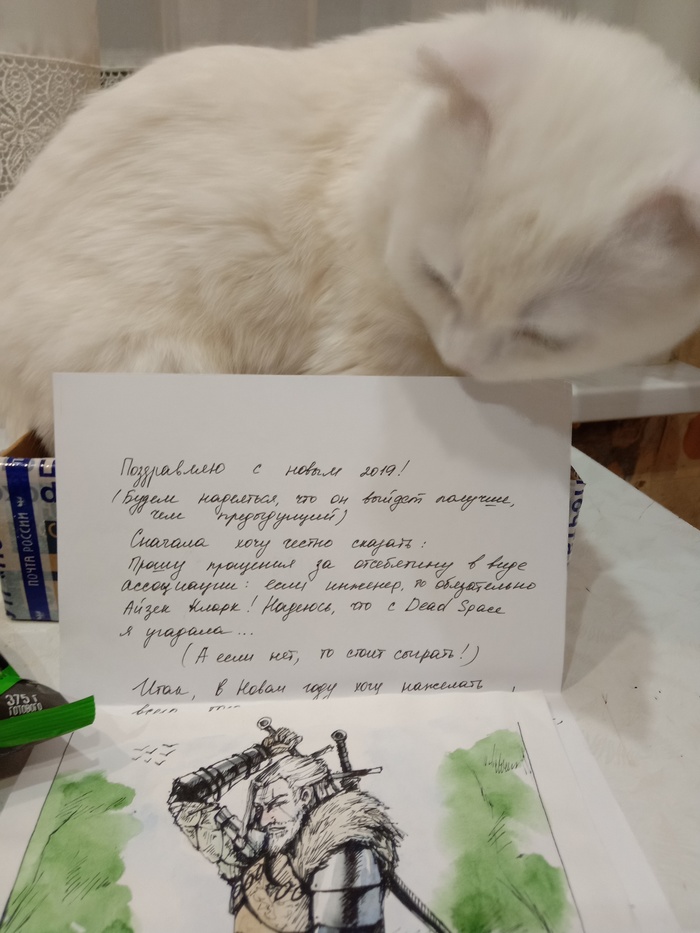 Поздравляю с новым 2019!
(Будем надеяться, что он выйдет получше,
чем предыдущий)
Сначала хочу честно сказать:
Прошу прощения за отсебятину в виде
ассоциации: если инженер, то обязательно
Айзек Кларк! Надеюсь, что с Dead Space
я угадала...
(А если нет, то стоит сыграть!)
Итак, в Новом году хочу пожелать
ПОЧТА РОССИИ
375 г
ГОТОВОГО